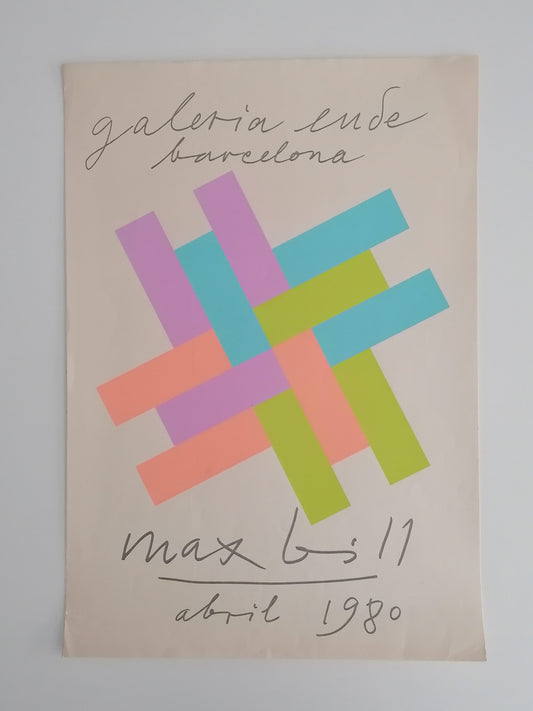 galeria eude
barcelona
max bill
abril 1980